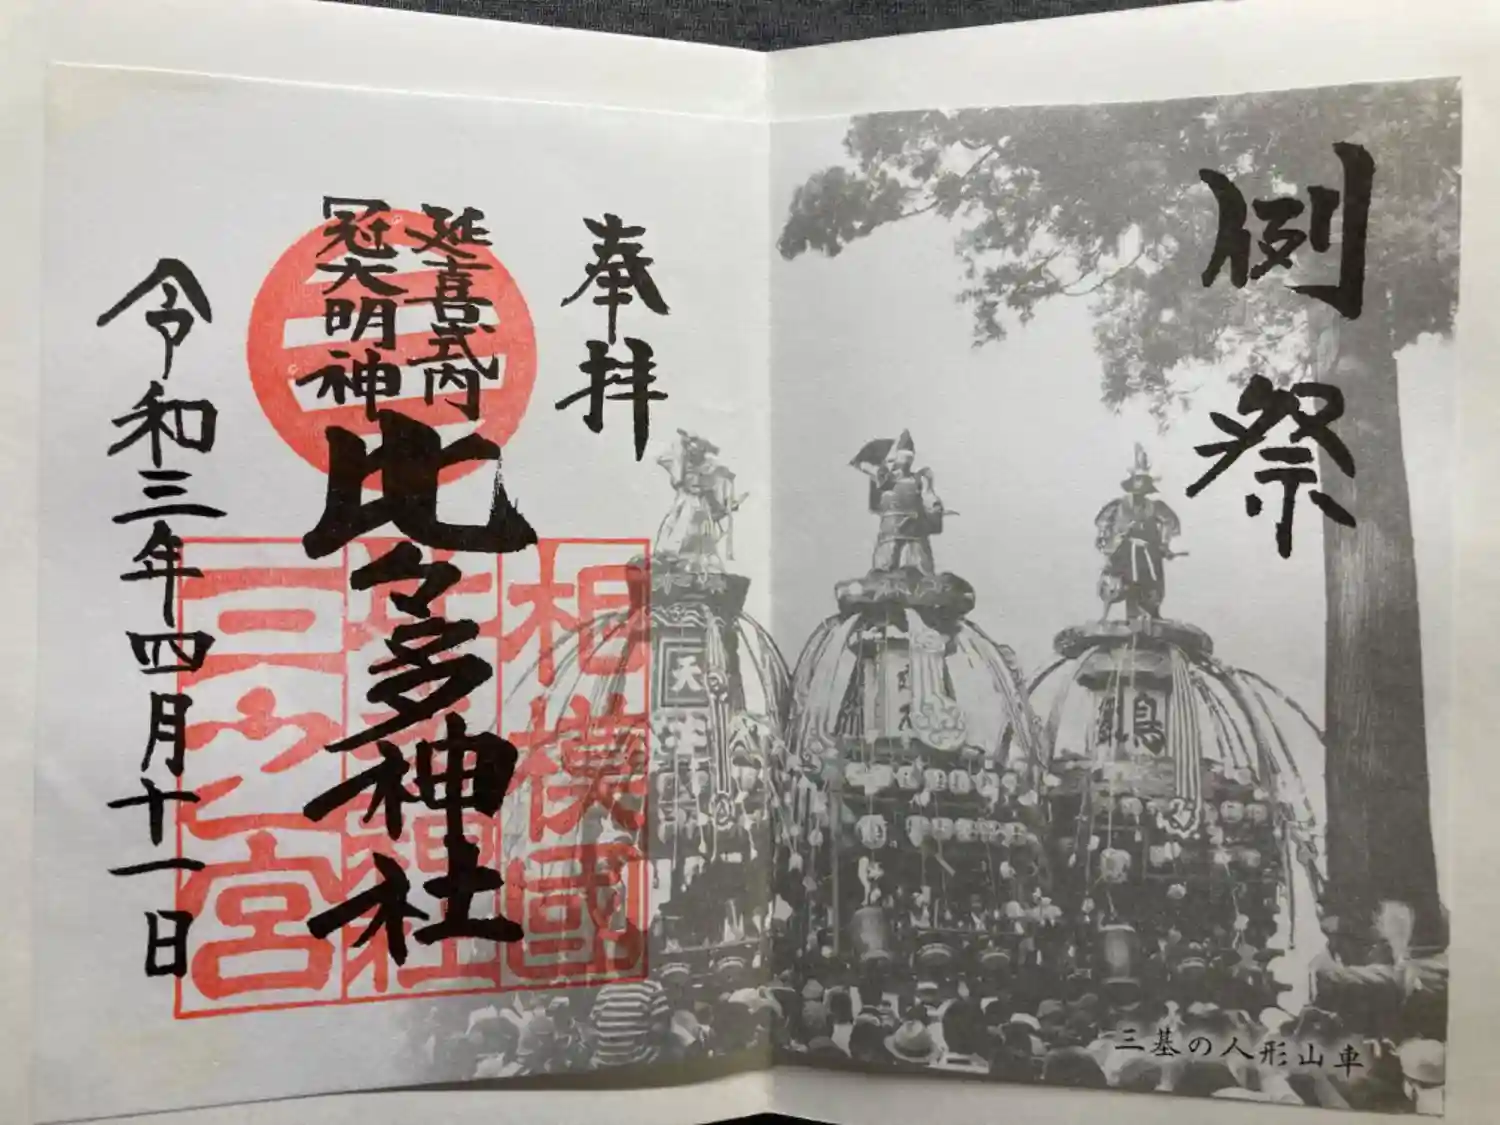 例祭
三基の人形山車
奉拝
延喜式内
冠大明神
比々多神社
令和三年四月十一日
三
相模國
三之宮
天